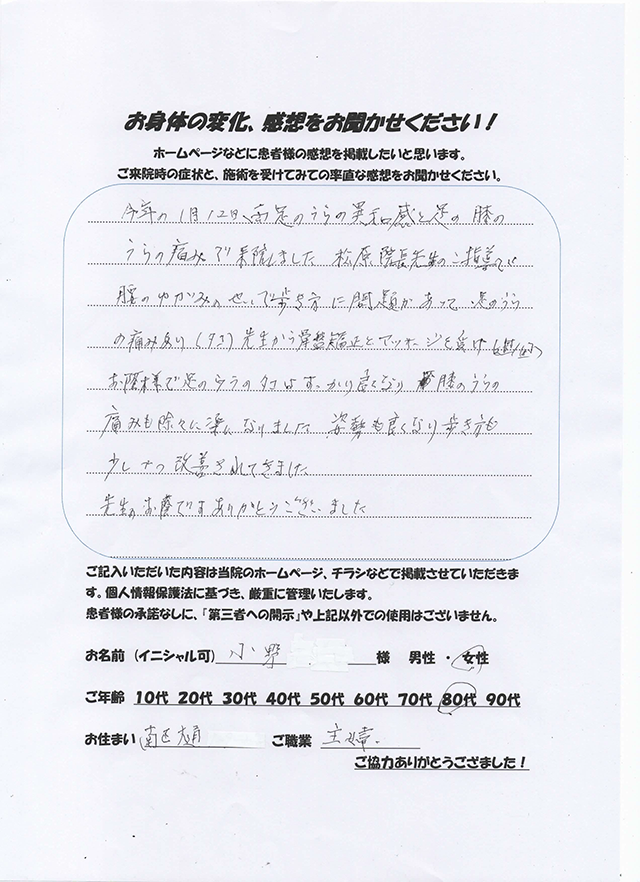 お身体の変化、感想をお聞かせください！
ホームページなどに患者様の感想を掲載したいと思います。
ご来院時の症状と、施術を受けてみての率直な感想をお聞かせください。
今年の1月12日、両足のうらの異和感と足の膝の
うらの痛みで来院しました 松原院長先生のご指導で
腰のゆがみのせいで歩き方に問題があって 足のうら
の痛みあり(タコ) 先生から骨盤矯正とマッサージを受け
お陰様で足のウラのタコはすっかり良くなり 膝のうらの
痛みも除々に楽になりました 姿勢も良くなり歩き方も
少しずつ改善されてきました
先生のお陰です ありがとうございました
ご記入いただいた内容は当院のホームページ、チラシなどで掲載させていただきま
す。個人情報保護法に基づき、厳重に管理いたします。
患者様の承諾なしに、「第三者への開示」や上記以外での使用はございません。
お名前（イニシャル可） 小野 様 男性 ・ 女性
ご年齢 10代 20代 30代 40代 50代 60代 70代 80代 90代
お住まい 南区大通 ご職業 主婦
ご協力ありがとうござました！